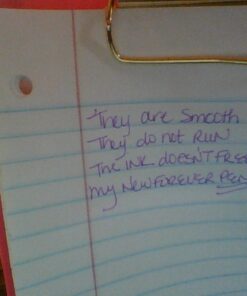 They are smooth
They do not RUN
The INK DOESN'T
my NEW FOREVER PEN